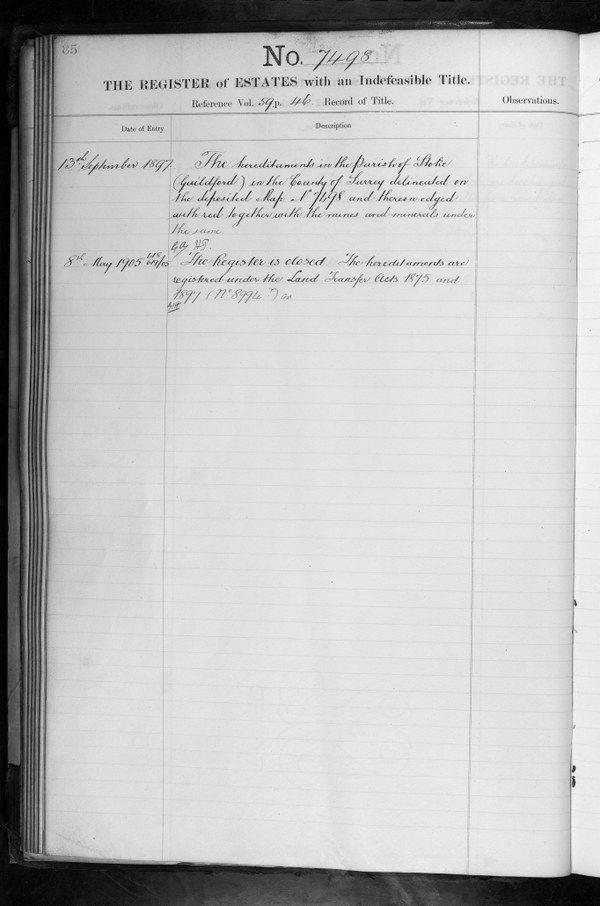 85
No. 7498
THE REGISTER of ESTATES with an Indefeasible Title.
Reference Vol. 59 p. 46 Record of Title.
Observations.
Date of Entry
Description
13th September 1897
The hereditaments in the Parish of Stoke
(Guildford) in the County of Surrey delineated on
the deposited Map No 7498 and thereon edged
with red together with the mines and minerals under
the same.
8th May 1905
The Register is closed The hereditaments are
registered under the Land Transfer Acts 1875 and
1897 (No